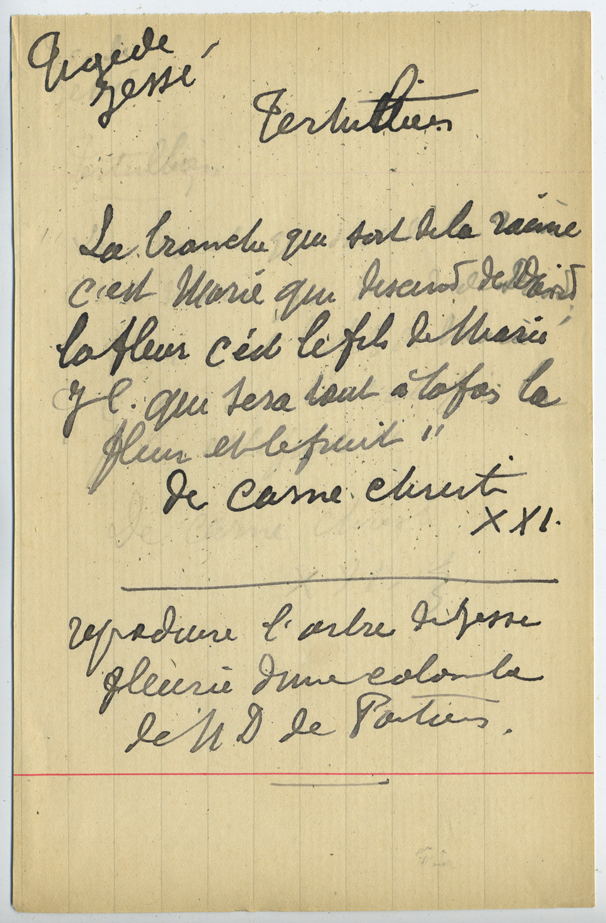 Tige de
Jessé
Tertullien
" La branche qui sort de la racine
c'est Marie qui descend de David
la fleur c'est le fils de Marie
J C. qui sera tout à la fois la
fleur et le fruit "
de carne christi
XXI.
reproduire l'arbre de Jesse
fleurie d'une colombe
de N D de Poitiers.